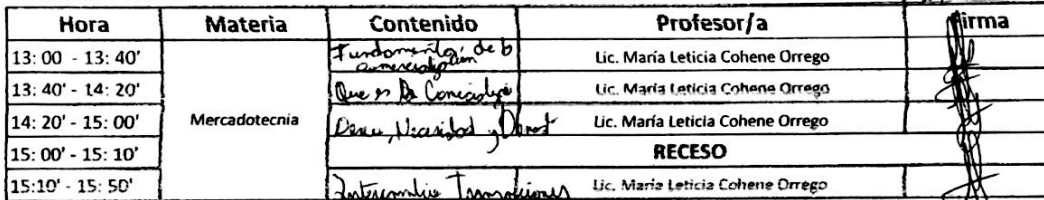 Hora Materia Contenido Profesor/a Firma
13: 00 - 13: 40' Fundamentos de la comercialización Lic. María Leticia Cohene Orrego
13: 40' - 14: 20' Que es la Lic. María Leticia Cohene Orrego
14: 20' - 15: 00' Mercadotecnia Deseo, Necesidad y Lic. María Leticia Cohene Orrego
15: 00' - 15: 10' RECESO
15:10' - 15: 50' Intercambio Transacciones Lic. María Leticia Cohene Orrego